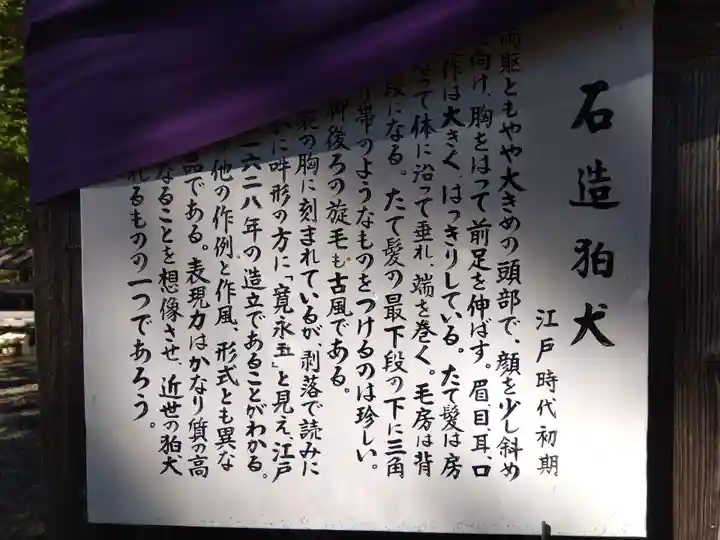 石造狛犬
江戸時代初期
両躯ともやや大きめの頭部で、顔を少し斜め
向け、胸をはって前足を伸ばす。眉、目、耳、口
作は大きく、はっきりしている。たて髪は房
って体に沿って垂れ、端を巻く。毛房は背
段になる。たて髪の最下段の下に三角
帯のようなものをつけるのは珍しい。
御後ろの旋毛も古風である。
の胸に刻まれているが、剥落で読みに
に吽形の方に「寛永五」と見え、江戸
一六二八年の造立であることがわかる。
他の作例と作風、形式とも異な
品である。表現力はかなり質の高
なることを想像させ、近世の狛犬
れるものの一つであろう。